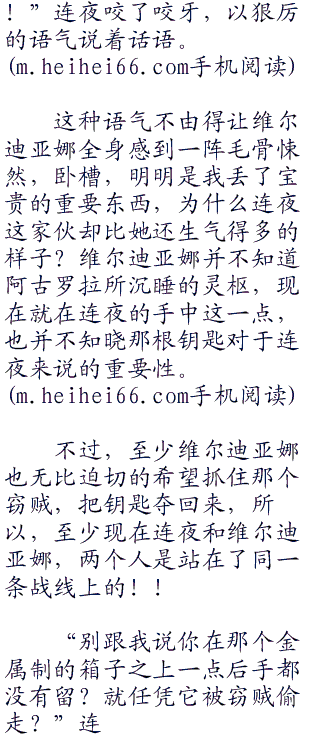 ！”连夜咬了咬牙，以狠厉
的语气说着话语。
(m.heihei66.com手机阅读)
这种语气不由得让维尔
迪亚娜全身感到一阵毛骨悚
然，卧槽，明明是我丢了宝
贵的重要东西，为什么连夜
这家伙却比她还生气得多的
样子？维尔迪亚娜并不知道
阿古罗拉所沉睡的灵枢，现
在就在连夜的手中这一点，
也并不知晓那根钥匙对于连
夜来说的重要性。
(m.heihei66.com手机阅读)
不过，至少维尔迪亚娜
也无比迫切的希望抓住那个
窃贼，把钥匙夺回来，所
以，至少现在连夜和维尔迪
亚娜，两个人是站在了同一
条战线上的！！
“别跟我说你在那个金
属制的箱子之上一点后手都
没有留？就任凭它被窃贼偷
走？”连